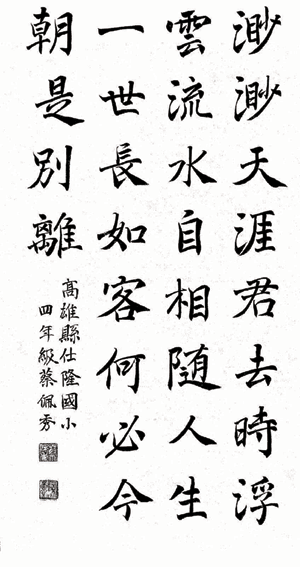 渺渺天涯君去時浮
雲流水自相隨人生
一世長如客何必今
朝是別離
高雄縣仕隆國小
四年級蔡佩秀